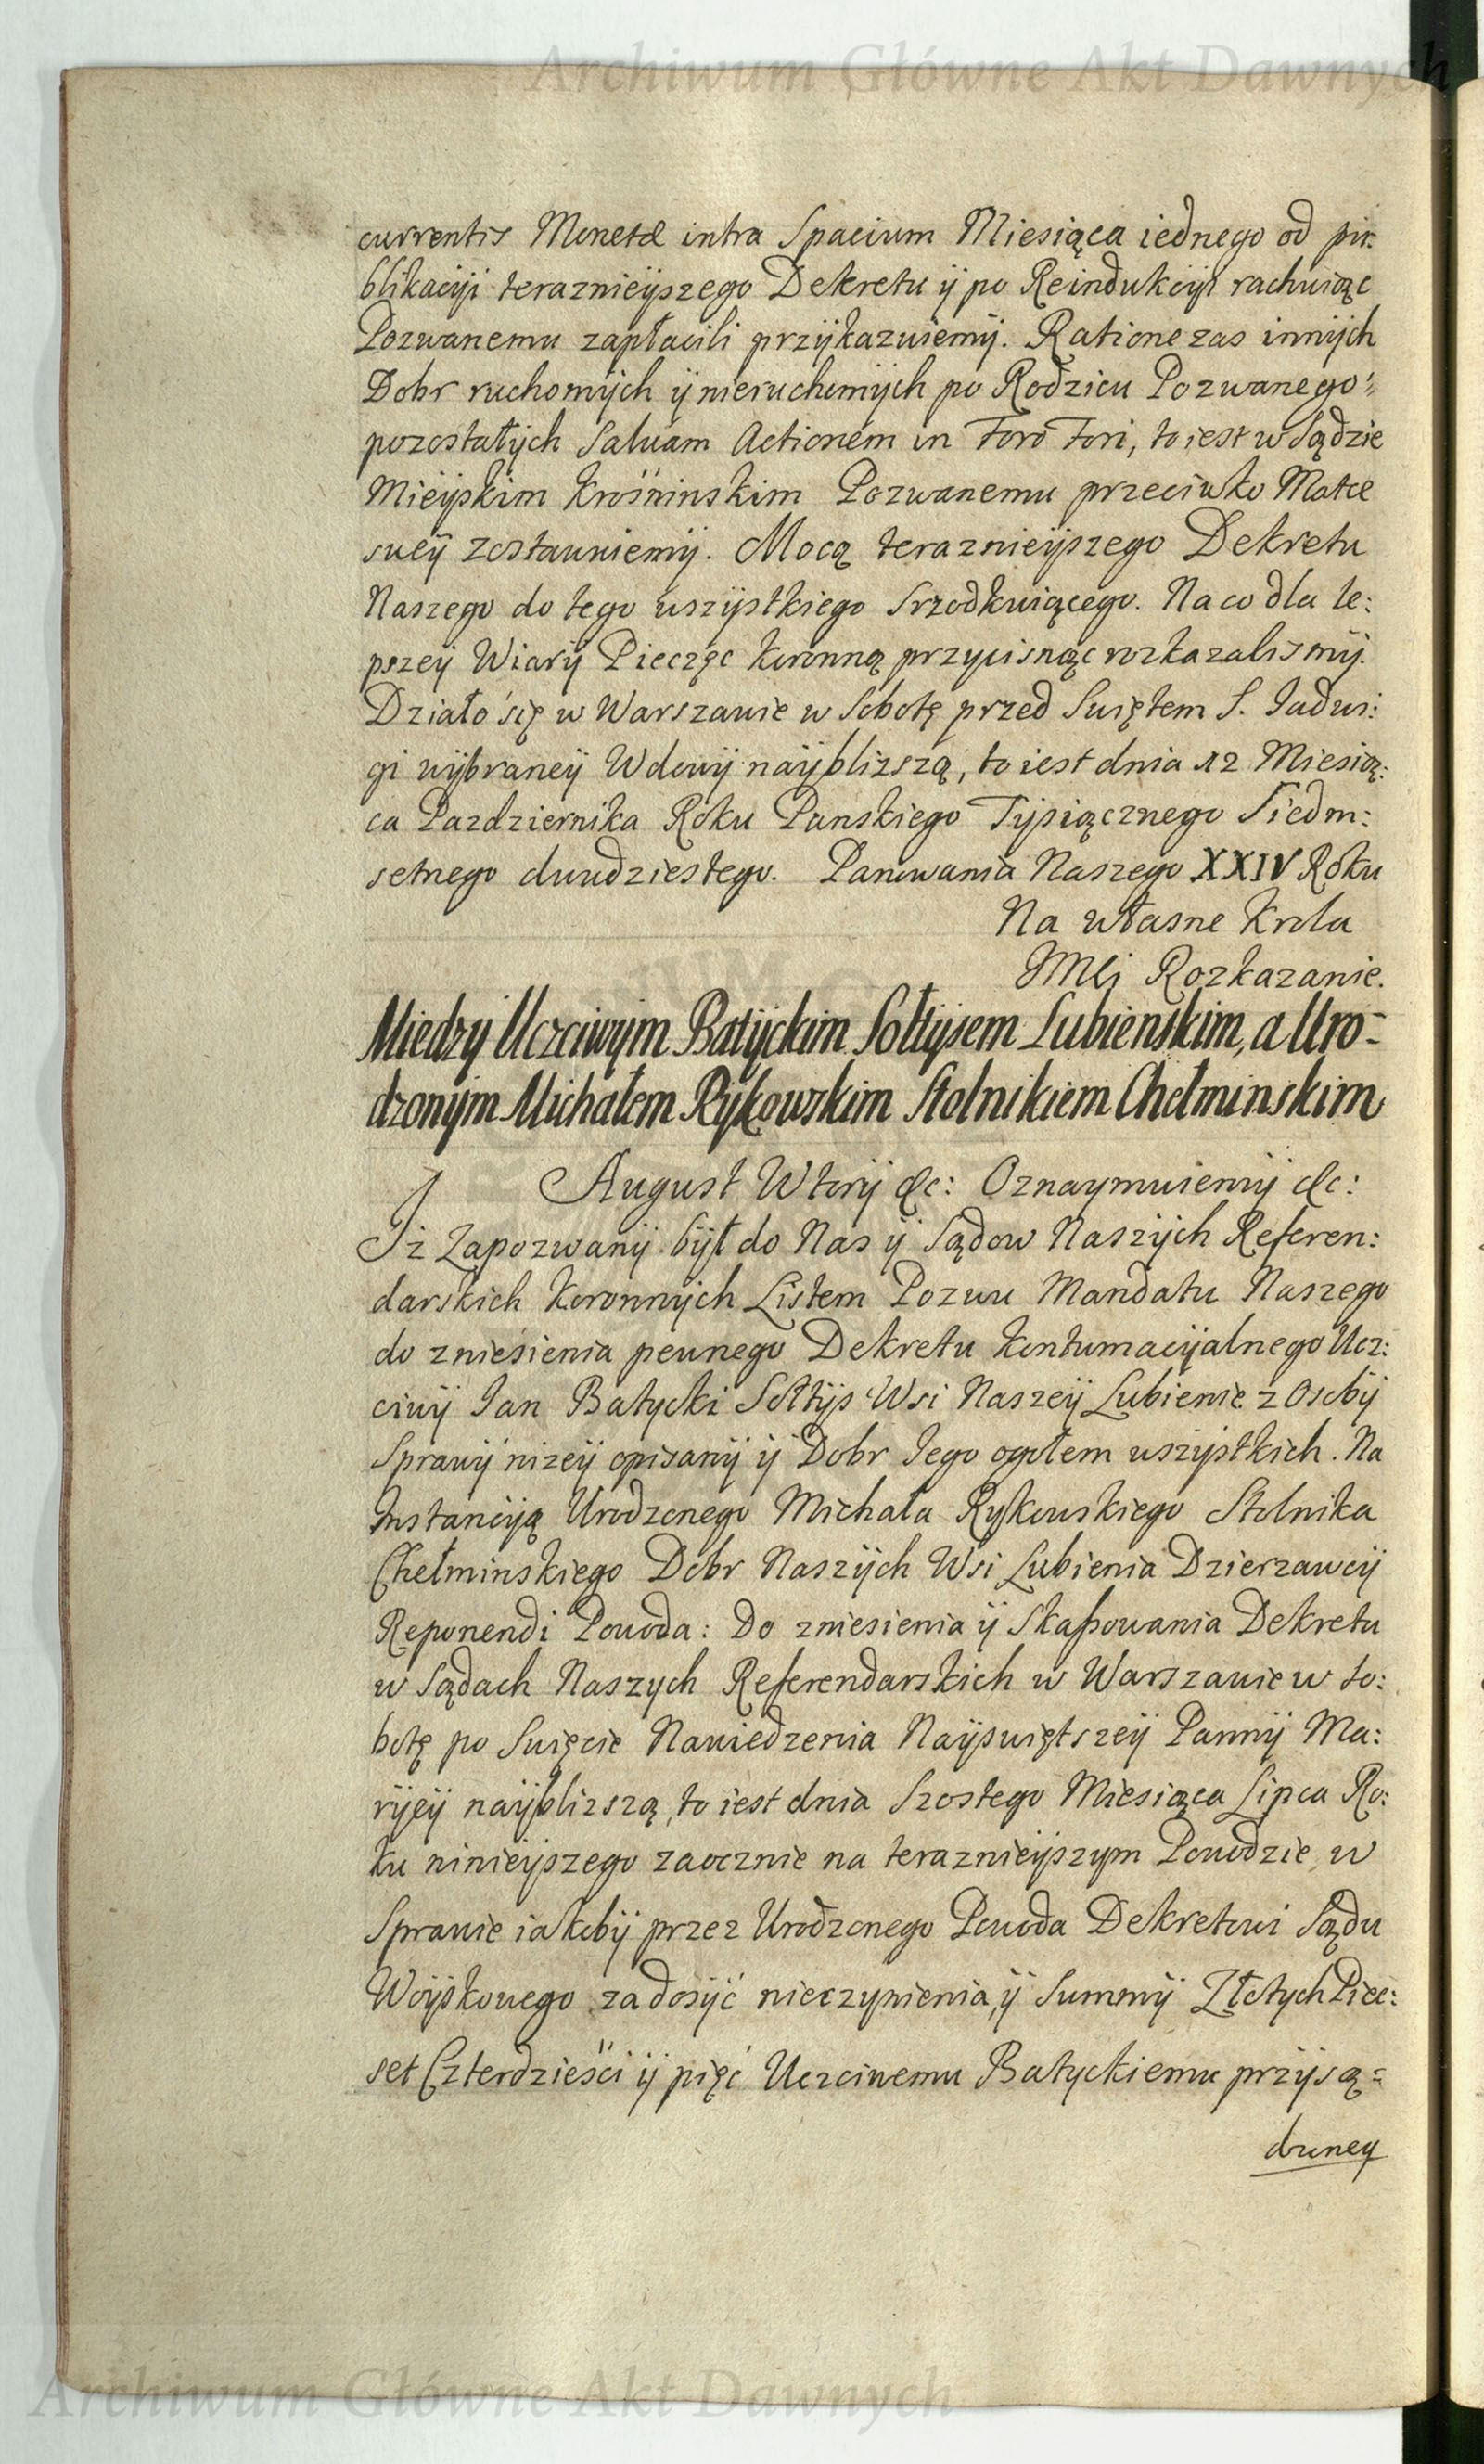 Archiwum Główne Akt Dawnych
currentis Monetæ intra Spacium Miesiąca iednego od pu:
blikacÿi teraznieÿszego Dekretu ÿ po Reindukcÿi rachuiąc
Pozwanemu zapłacili przÿkazuiemÿ. Ratione zas innÿch
Dobr ruchomÿch ÿ nieruchomÿch po Rodzicu Pozwanego
pozostałÿch Salvam Actionem in Foro Fori, to iest w Sądzie
Mieÿskim Krośninskim Pozwanemu przeciwko Matce
sweÿ zostawuiemÿ. Mocą teraznieÿszego Dekretu
Naszego do tego wszÿstkiego Srzodkuiącego. Na co dla le:
pszeÿ Wiarÿ Pieczęc Koronną przycisnąc rozkazalismÿ.
Działo się w Warszawie w Sobotę przed Swiętem S. Jadwi:
gi wÿbraneÿ Wdowÿ naÿblizszą, to iest dnia 12 Miesią:
ca Pazdziernika Roku Panskiego Tÿsiącznego Siedm:
setnego dwudziestego. Panowania Naszego XXIV Roku
Na własne Krola
JMCi Rozkazanie.
Miedzÿ Uczciwÿm Batÿckim Sołtÿsem Lubienskim, a Uro-
dzonÿm Michałem Rÿkowskim Stolnikiem Chełminskim
August Wtorÿ &c: Oznaymuiemÿ &c:
Iz Zapozwanÿ bÿł do Nas ÿ Sądow Naszÿch Referen:
darskich Koronnÿch Listem Pozwu Mandatu Naszego
do zniesienia pewnego Dekretu KontumacÿalnegoUcz:
ciwÿ Jan Batycki Sołtÿs Wsi Naszeÿ Lubienie z Osobÿ
Sprawÿ nizeÿ opisanÿ ÿ Dobr Jego ogołem wszÿstkich. Na
Instancÿą Urodzonego Michała Rykowskiego Stolnika
Chełminskiego Dobr Naszÿch Wsi Lubienia Dzierzawcÿ
Reponendi Powoda: Do zniesienia ÿ Skaßowania Dekretu
w Sądach Naszych Referendarskich w Warszawie w So:
botę po Swięcie Nawiedzenia Naÿswiętszeÿ Pannÿ Ma:
rÿeÿ naÿblizszą, to iest dnia Szostego Miesiąca Lipca Ro:
ku ninieÿszego zaocznie na teraznieÿszym Powodzie, w
Sprawie iakobÿ przez Urodzonego Powoda Dekretowi Sądu
Woÿskowego zadosÿć nieczynienia, ÿ Summÿ Złotych Piec:
set Czterdzieści ÿ pięć Uczciwemu Batyckiemu przÿsą:
dzoneÿ
Archiwum Główne Akt Dawnych